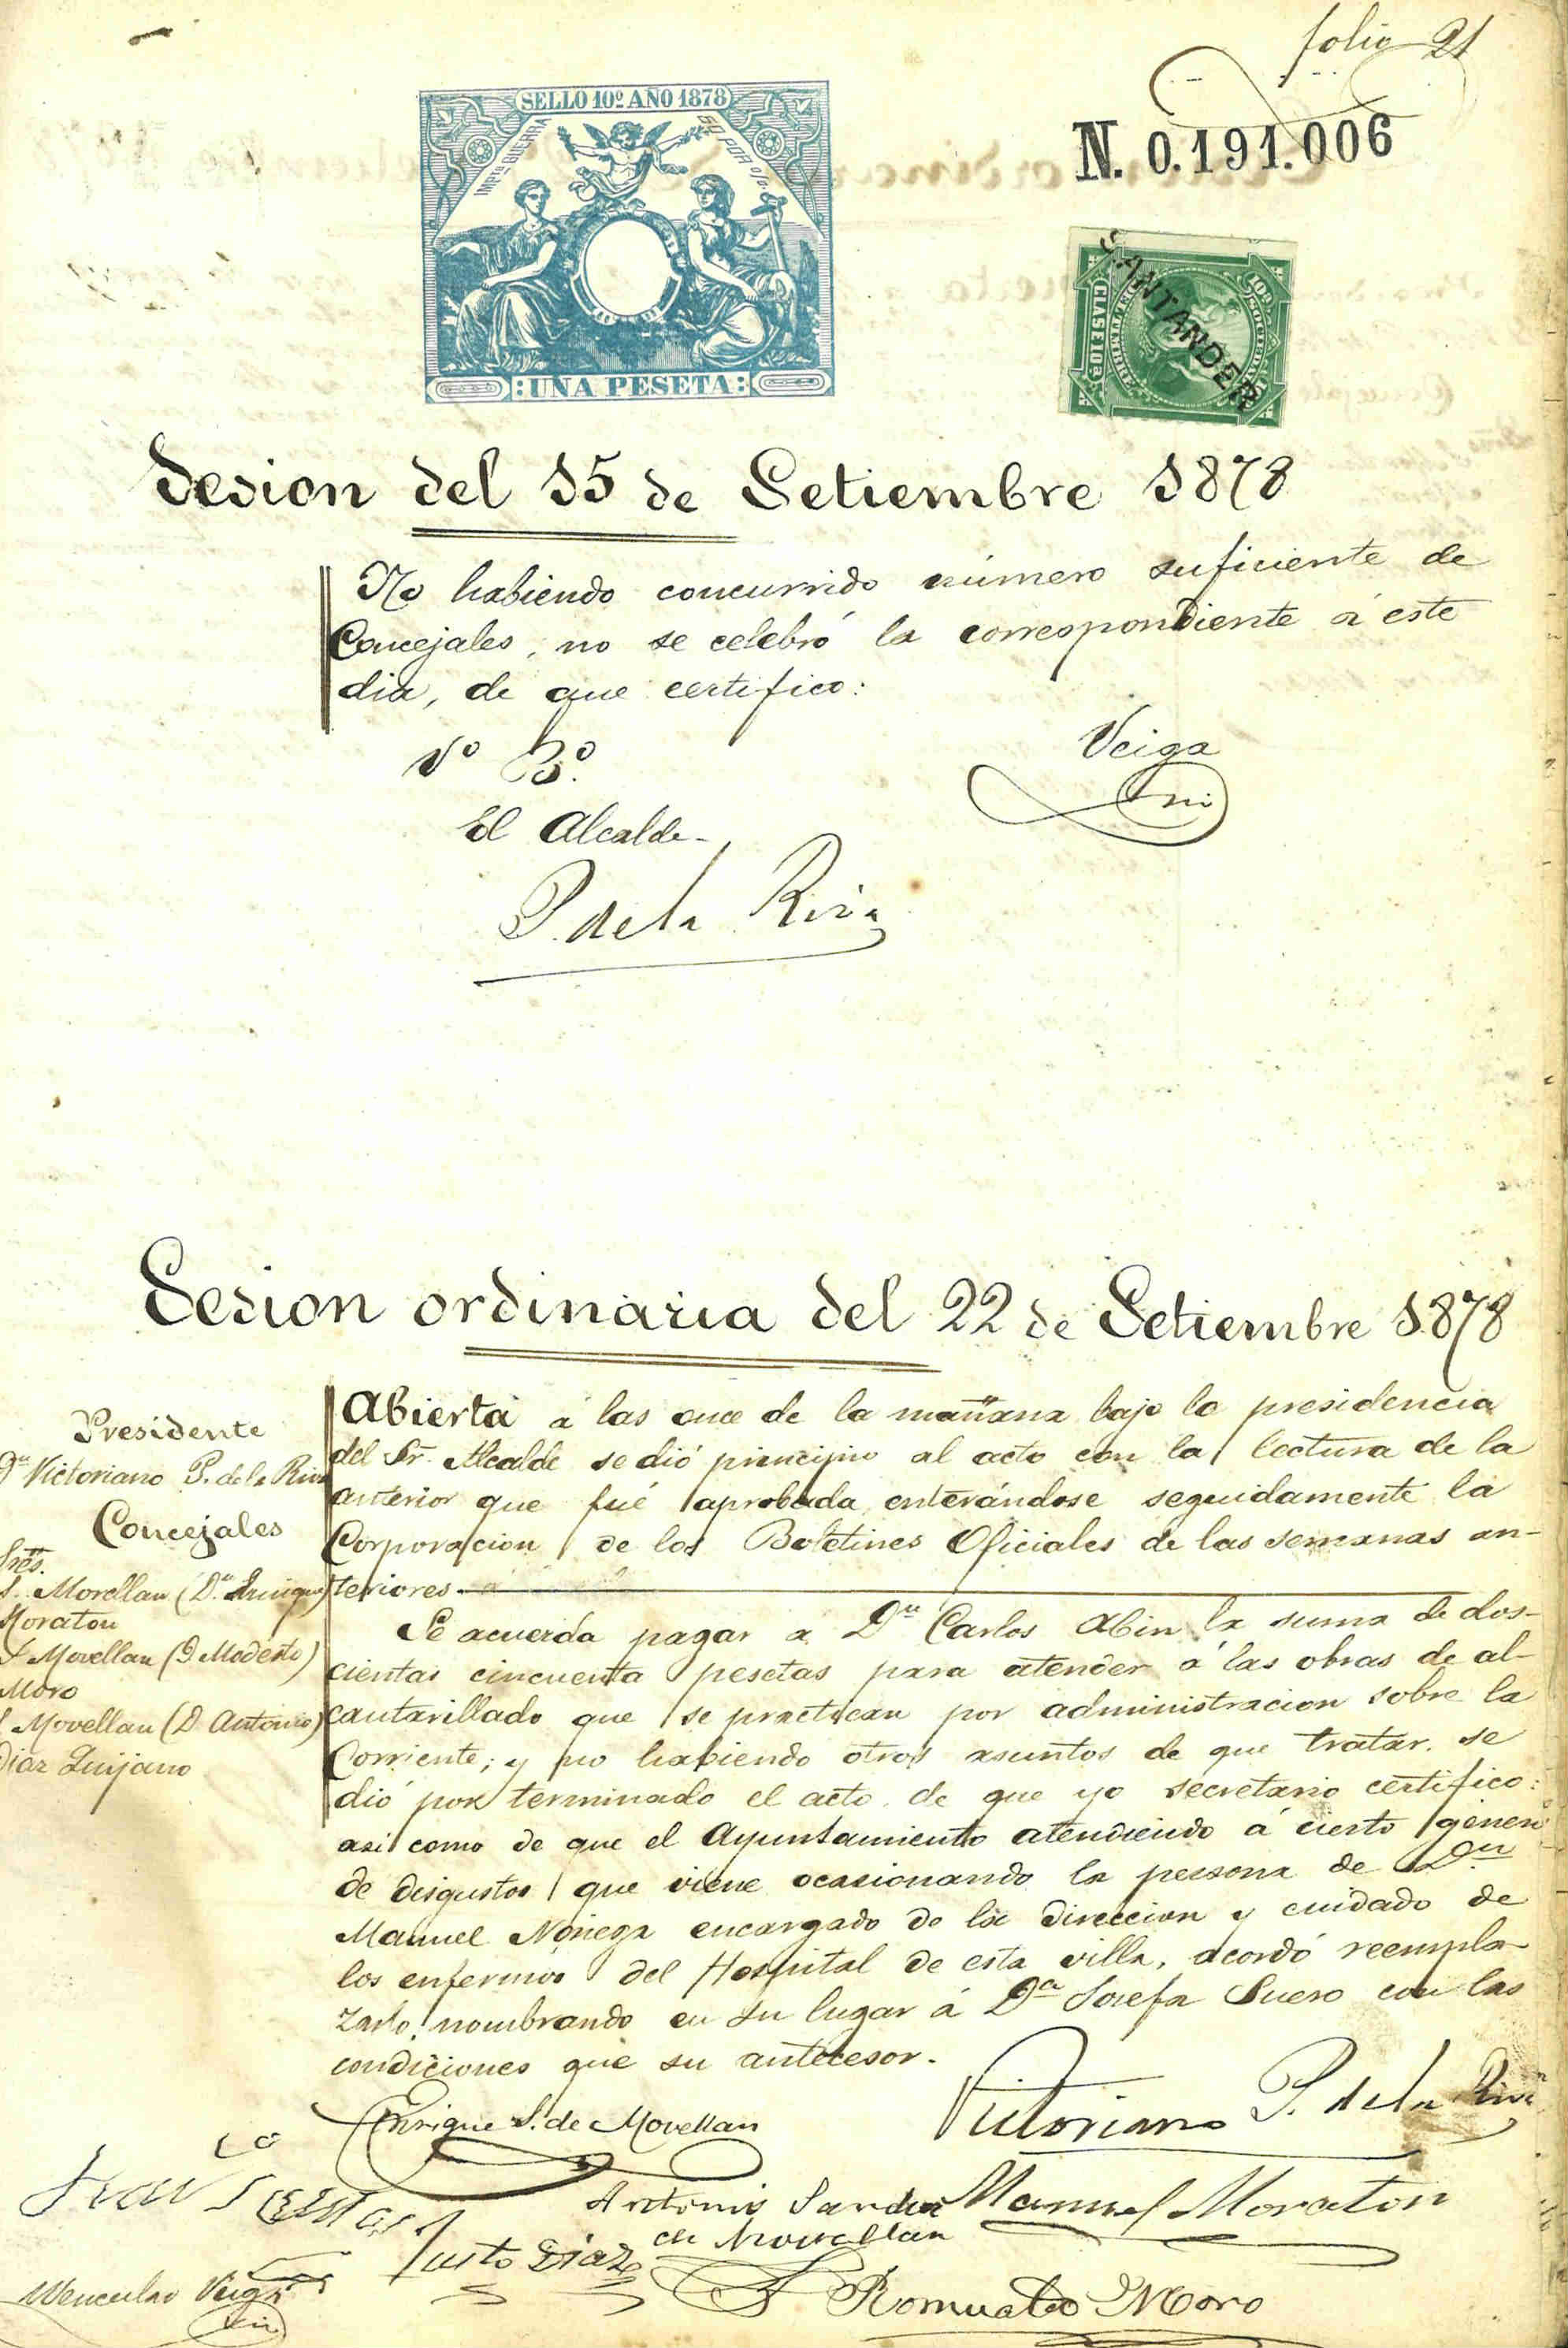 folio 21
SELLO 10º AÑO 1878
IMPTO GUERRA
50 POR 0/0
UNA PESETA
N. 0.191.006
SANTANDER
CLASE 10ª
Sesion del 15 de Setiembre 1878
No habiendo concurrido número suficiente de
Concejales, no se celebró la correspondiente á este
dia, de que certifico:
Vº Bº.
Veiga
El Alcalde
P. de la Riva
Sesion ordinaria del 22 de Setiembre 1878
Presidente
Dn Victoriano P. de la Riva
Concejales
Sres.
S. Movellan (Dn Enrique)
Moraton
S. Movellan (D Modesto)
Moro
S. Movellan (D. Antonio)
Diaz Quijano
Abierta á las once de la mañana bajo la presidencia
del Sr. Alcalde se dió principio al acto con la lectura de la
anterior que fué aprobada, enterándose seguidamente la
Corporacion de los Boletines Oficiales de las semanas an-
teriores
Se acuerda pagar a Dn Carlos Abin la suma de dos-
cientas cincuenta pesetas para atender á las obras de al-
cantarillado que se practican por administracion sobre la
Corriente; y no habiendo otros asuntos de que tratar, se
dió por terminado el acto de que yo secretario certifico:
asi como de que el Ayuntamiento atendiendo á cierto género
de disgustos que viene ocasionando la persona de Dn
Manuel Noriega encargado de la direccion y cuidado de
los enfermos del Hospital de esta villa, acordó reempla-
zarlo, nombrando en su lugar á Da Josefa Suero con las
condiciones que su antecesor.
Enrique S. de Movellan
Victoriano P. de la Riva
Antonio Sanchez
de Movellan
Manuel Moraton
Justo Diaz
Wenceslao Veiga
Romualdo Moro